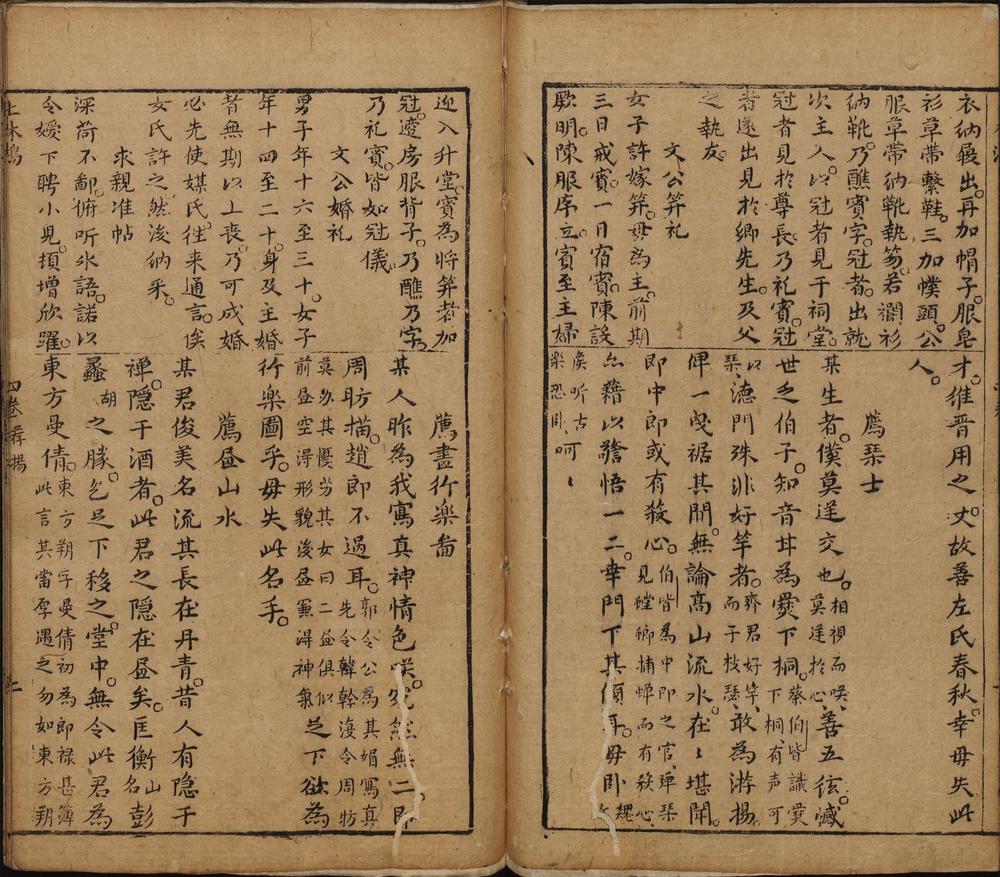 衣納屐出。再加帽子。服皂
衫草帶繫鞋。三加幞頭。公
服草帶納靴執笏。若襴衫
納靴。乃醮賓字。冠者。出就
次主人。以冠者見于祠堂。
冠者見於尊長乃礼賓。冠
者遂出見於鄉先生。及父
之執友。
文公笄礼
女子許嫁笄。毋為主。前期
三日戒賓。一日宿賓。陳設
厥明。陳服序立賓至主婦
才。維晋用之。丈故善左氏春秋。幸毋失此
人。
薦琴士
某生者。僕莫逆交也。相視而唉莫逆於心善五絃。憾
世乏伯子。知音耳為爨下桐。蔡伯喈識爨下桐有声可
以琴德門殊非好竽者。齊君好竽而子枝瑟敢為游揚。
俾一曳裾其間。無論高山流水。在〻堪聞。
即中郎或有殺心。伯喈為中郎之官彈琴見螳螂捕蟬而有殺心
亦藉以警悟一二。幸門下其傾耳。毋卧魏
矦听古樂恐卧呵〻
迎入升堂。賓為將笄者加
冠。適房服背子。乃醮乃字。
乃礼賓。皆如冠儀。
文公婚礼
男子年十六至三十。女子
年十四至二十。身及主婚
者無期以上喪。乃可成婚
必先使媒氏徃来通言。俟
女氏許之然後納采。
求親准帖
深荷不鄙。俯听氷語。諾以
令嬡下聘小児。損增欣躍。
薦畫行樂啚
某人昨為我寫真神情色咲。宛然無二。即
周昉描。趙郎不過耳。郭令公為其媚寫真先令韓幹後令周昉
莫办其優劣其女曰二昼俱似前昼空淂形貌後昼兼淂神氣之下欲為
行樂圖乎。毋失此名手。
薦昼山水
某君俊美名流其長在丹青。昔人有隐于
禅。隐于酒者。此君之隐在昼矣。匡衡山名彭
蠡湖之勝。乞足下移之。堂中。無令此君為
東方曼倩。東方朔字曼倩初為郎禄甚簿此言其當厚遇之勿如東方朔
四卷